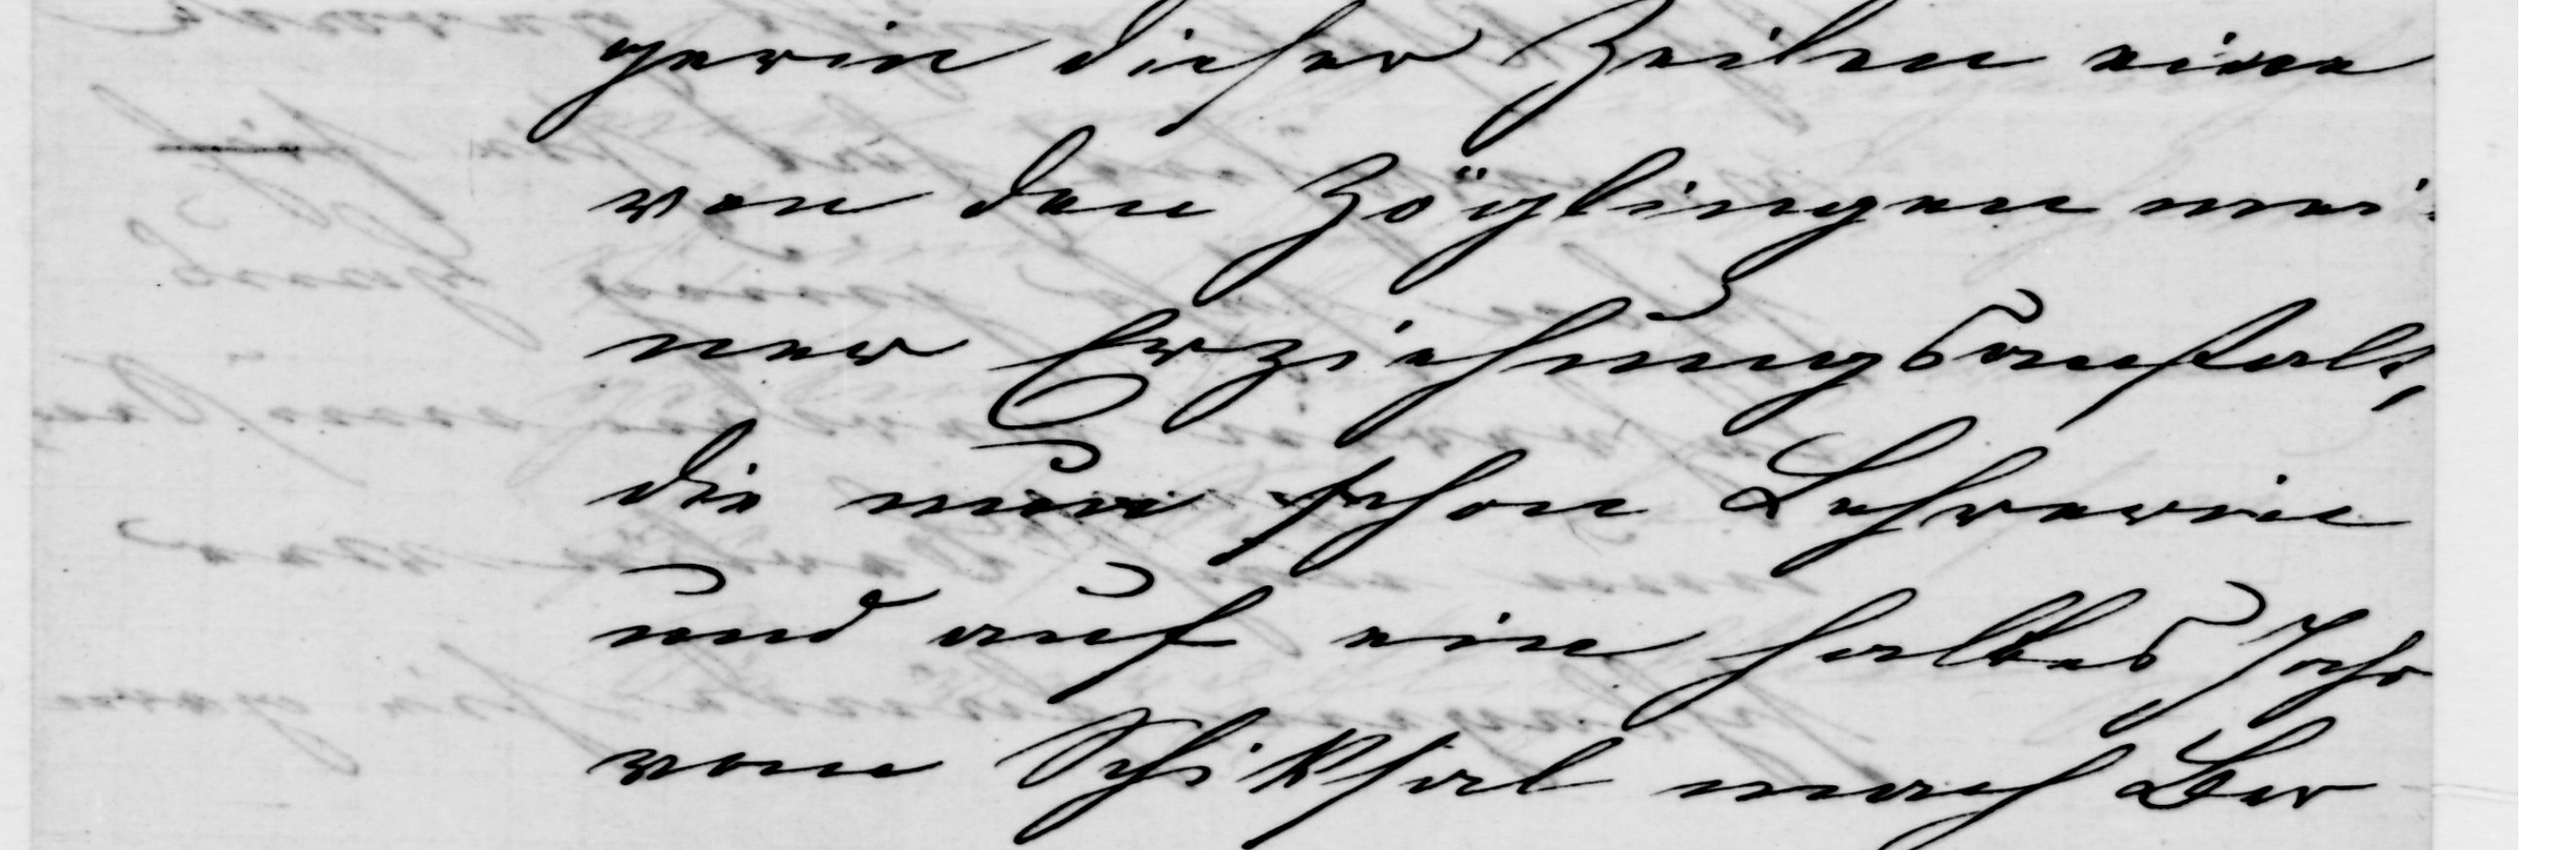 gerin dieser Zeilen eine
von den Zöglingen mei-
ner Erziehungsanstalt,
die nun schon Lehrerin
und auf ein halbes Jahr
vom Schiksal nach Ber